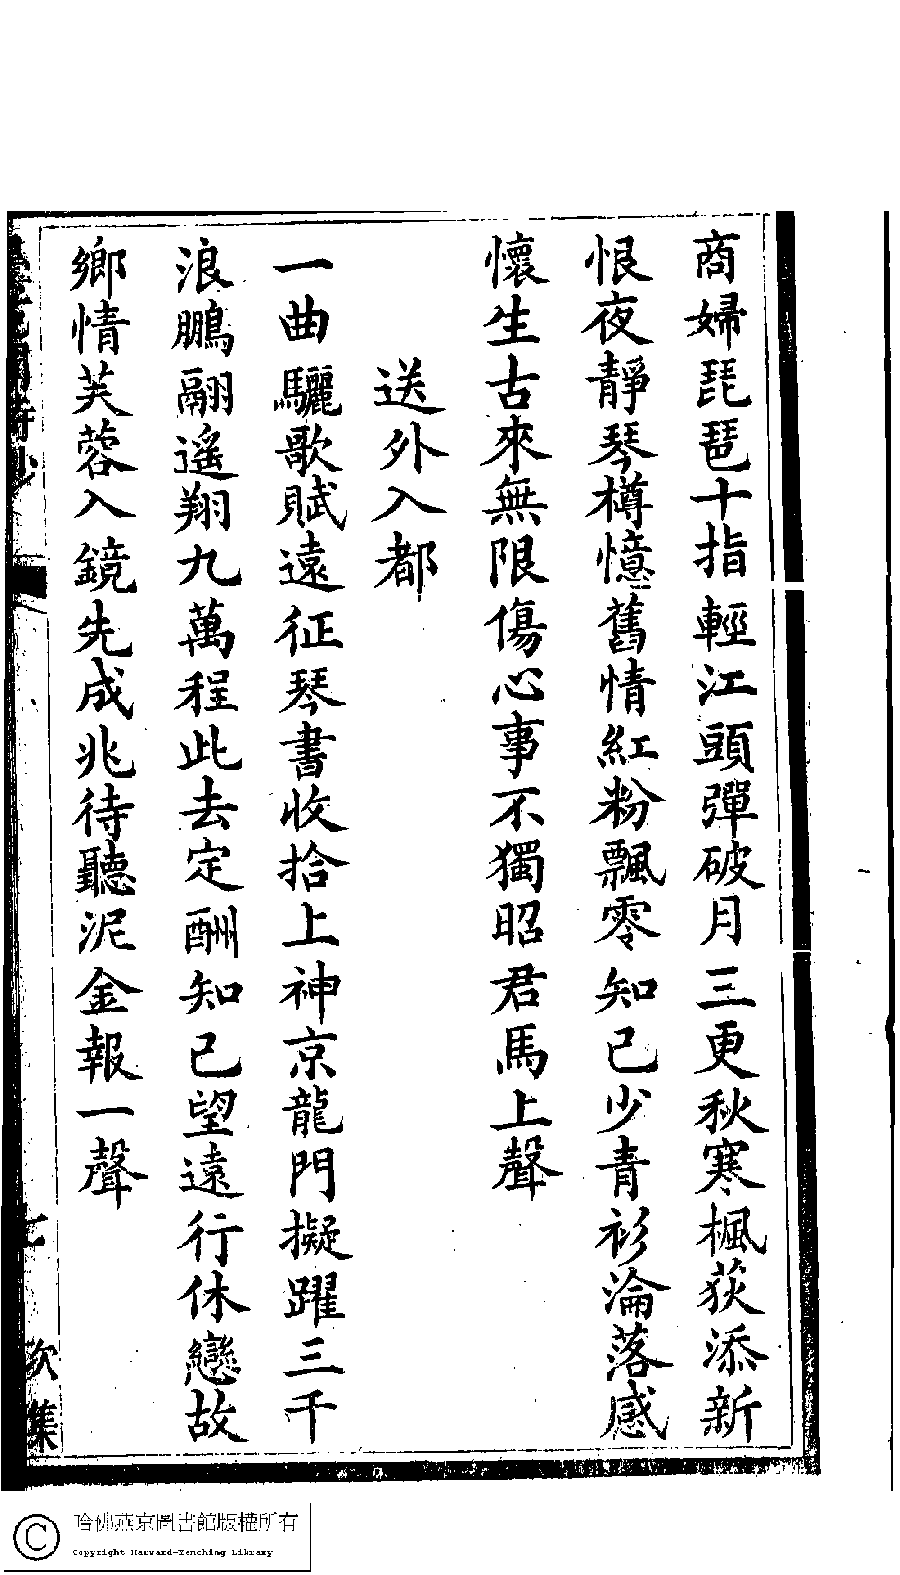 商婦琵琶十指輕江頭彈破月三更秋寒楓荻添新
恨夜靜琴樽憶舊情紅粉飄零知已少青衫淪落感
懷生古來無限傷心事不獨昭君馬上聲
送外入都
一曲驪歌賦遠征琴書收拾上神京龍門擬躍三千
浪鵬翮遙翔九萬程此去定酬知已望遠行休戀故
鄉情芙蓉入鏡先成兆待聽泥金報一聲
詩鈔
七
次集
哈佛燕京圖書館版權所有
Copyright Harvard-Yenching Library